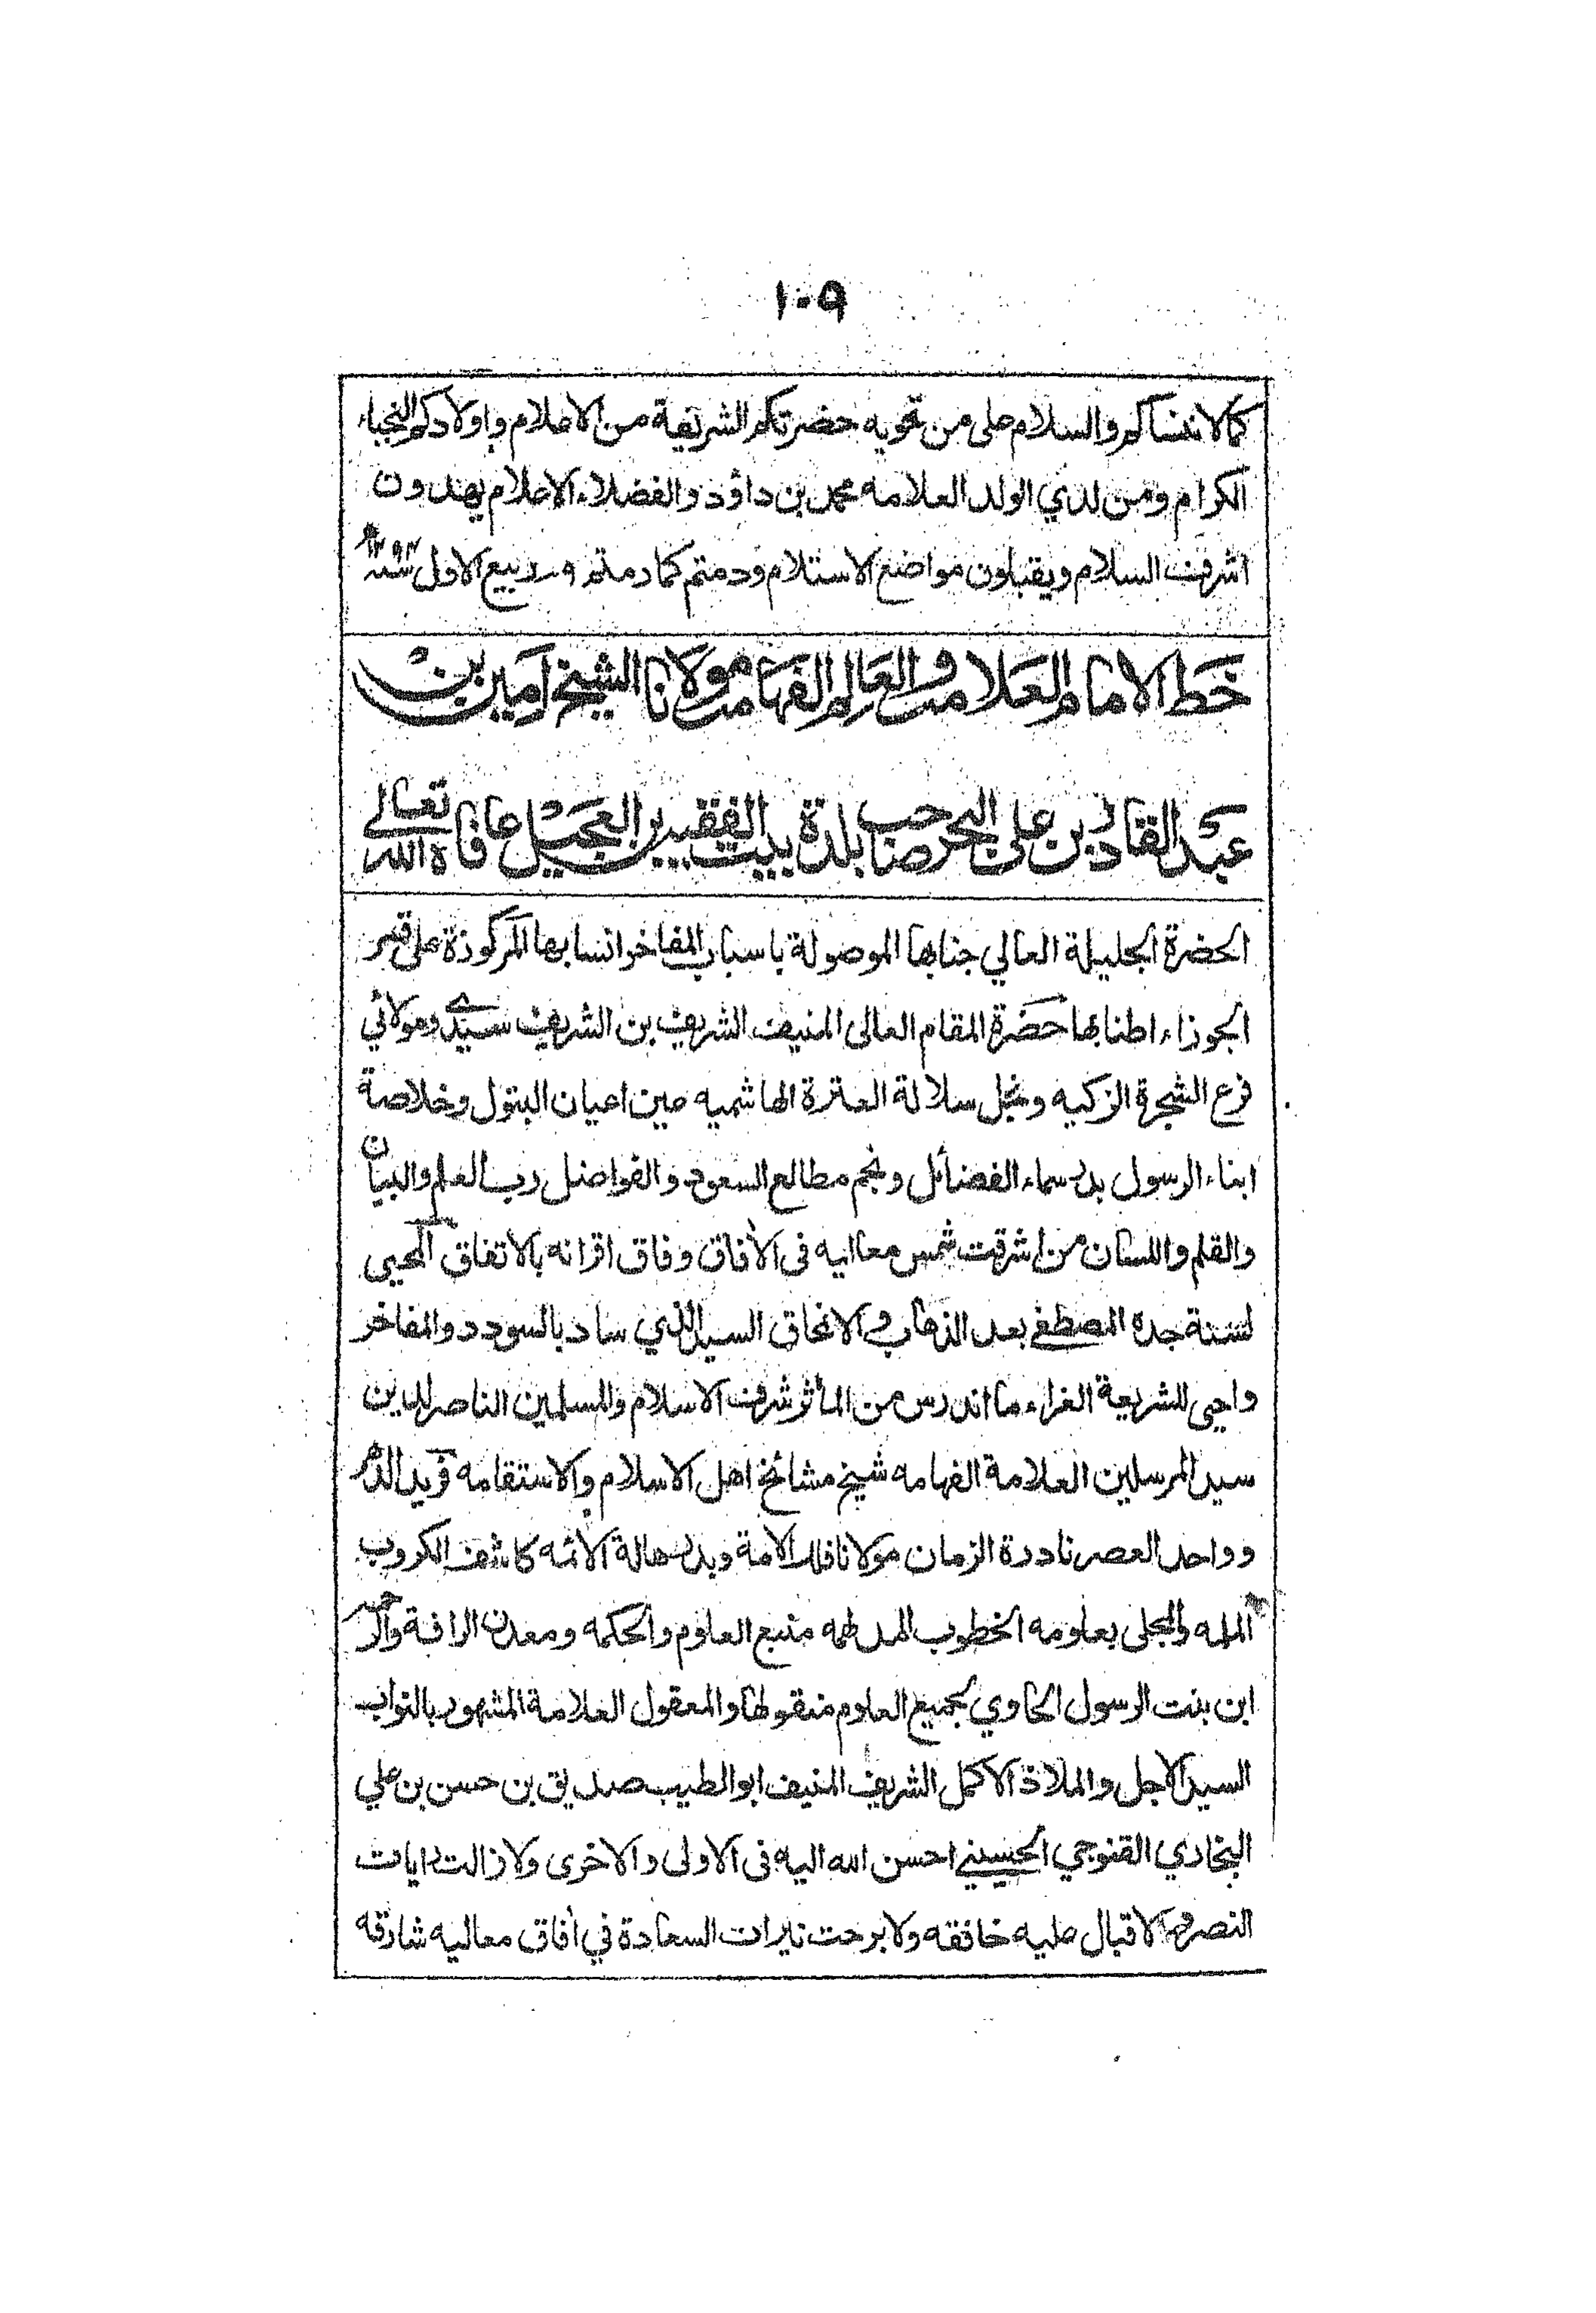 ١٠٩
كما لا ننساكم والسلام على من تحويه حضرتكم الشريفة من الاعلام واولادكم النجباء
الكرام ومن لدي الولد العلامه محمد بن داؤد والفضلاء الاعلام يهدون
اشرف السلام ويقبلون مواضع الاستلام ودمتم كما رمتم ٩ ربيع الاول سنة
خط الامام العلامة والعالم الفهامة مولانا الشيخ امين بن
عبد القادر بن علي البحر صاحب بلدة بيت الفقيه بن العجيل عافاه الله تعالى
الحضرة الجليلة العالي جنابها الموصولة باسباب المفاخر انسابها المركوزة على قمر
الجوزاء اطنابها حضرة المقام العالى المنيف الشريف بن الشريف سيدي ومولائي
فرع الشجرة الزكيه ونجل سلالة العترة الهاشميه عين اعيان البتول وخلاصة
ابناء الرسول بدر سماء الفضائل ونجم مطالع السعود والفواضل رب العلم والبيان
والقلم واللسان من اشرقت شمس معاليه فى الأفاق وفاق اقرانه بالاتفاق المحيى
لسنة جده المصطفى بعد الذهاب والانمحاق السيد الذي ساد بالسودد والمفاخر
واحيى للشريعة الغراء ما اندرس من المأثر شرف الاسلام والمسلمين الناصر للدين
سيد المرسلين العلامة الفهامه شيخ مشائخ اهل الاسلام والاستقامه فريد الدهر
وواحد العصر نادرة الزمان مولانا فلك الامة وبدر هالة الائمه كاشف الكروب
الملمه والمجلى بعلومه الخطوب المدلهمه منبع العلوم والحكمه ومعدن الرافة والرحمه
ابن بنت الرسول الحاوي لجميع العلوم منقولها والمعقول العلامة المشهور بالنواب
السيد الاجل والملاذ الاكمل الشريف المنيف ابو الطيب صديق بن حسن بن علي
البخاري القنوجي الحسيني احسن الله اليه فى الاولى والاخرى ولا زالت رايات
النصر والاقبال عليه خافقه ولا برحت نيرات السعادة في أفاق معاليه شارقه